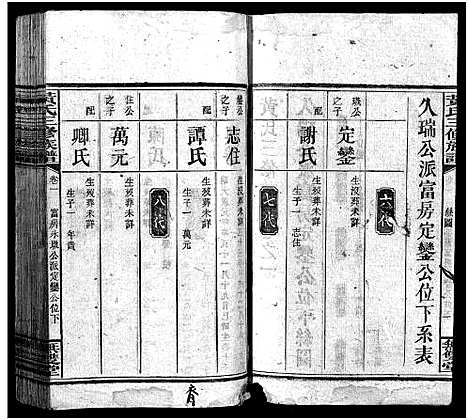 黃氏三修族譜
久瑞公派富房定鑾公位下系表
六代
定鑾
生歿葬未詳
配
謝氏
生歿葬未詳
生子一 志住
七代
鑾公之子
志住
生歿葬未詳
配
譚氏
生歿葬未詳
生子一 萬元
八代
住公之子
萬元
生歿葬未詳
配
卿氏
生歿葬未詳
生子一 年貴
黃氏三修族譜
卷一 富房永璣公派定鑾公位下